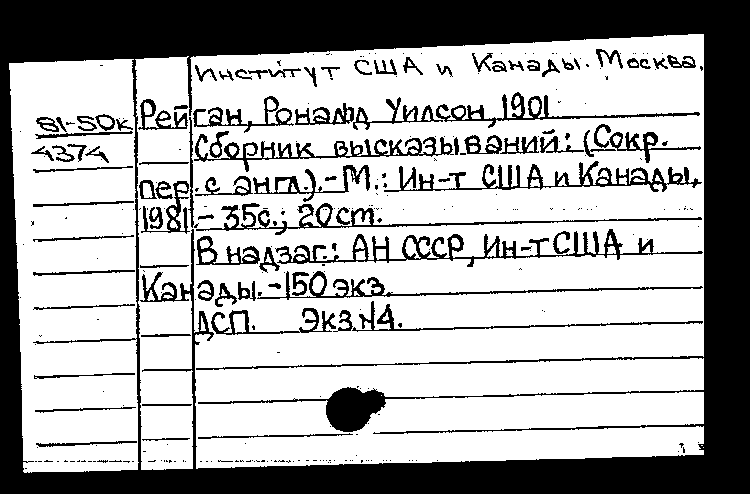 Институт США и Канады. Москва.
81-50к Рейган, Рональд Уилсон, 1901
4374 Сборник высказываний: (Сокр.
пер. с англ.).-М.: Ин-т США и Канады,
1981.- 35с.; 20ст.
В надзаг.: АН СССР, Ин-т США и
Канады.-150 экз.
ДСП. Экз.N4.